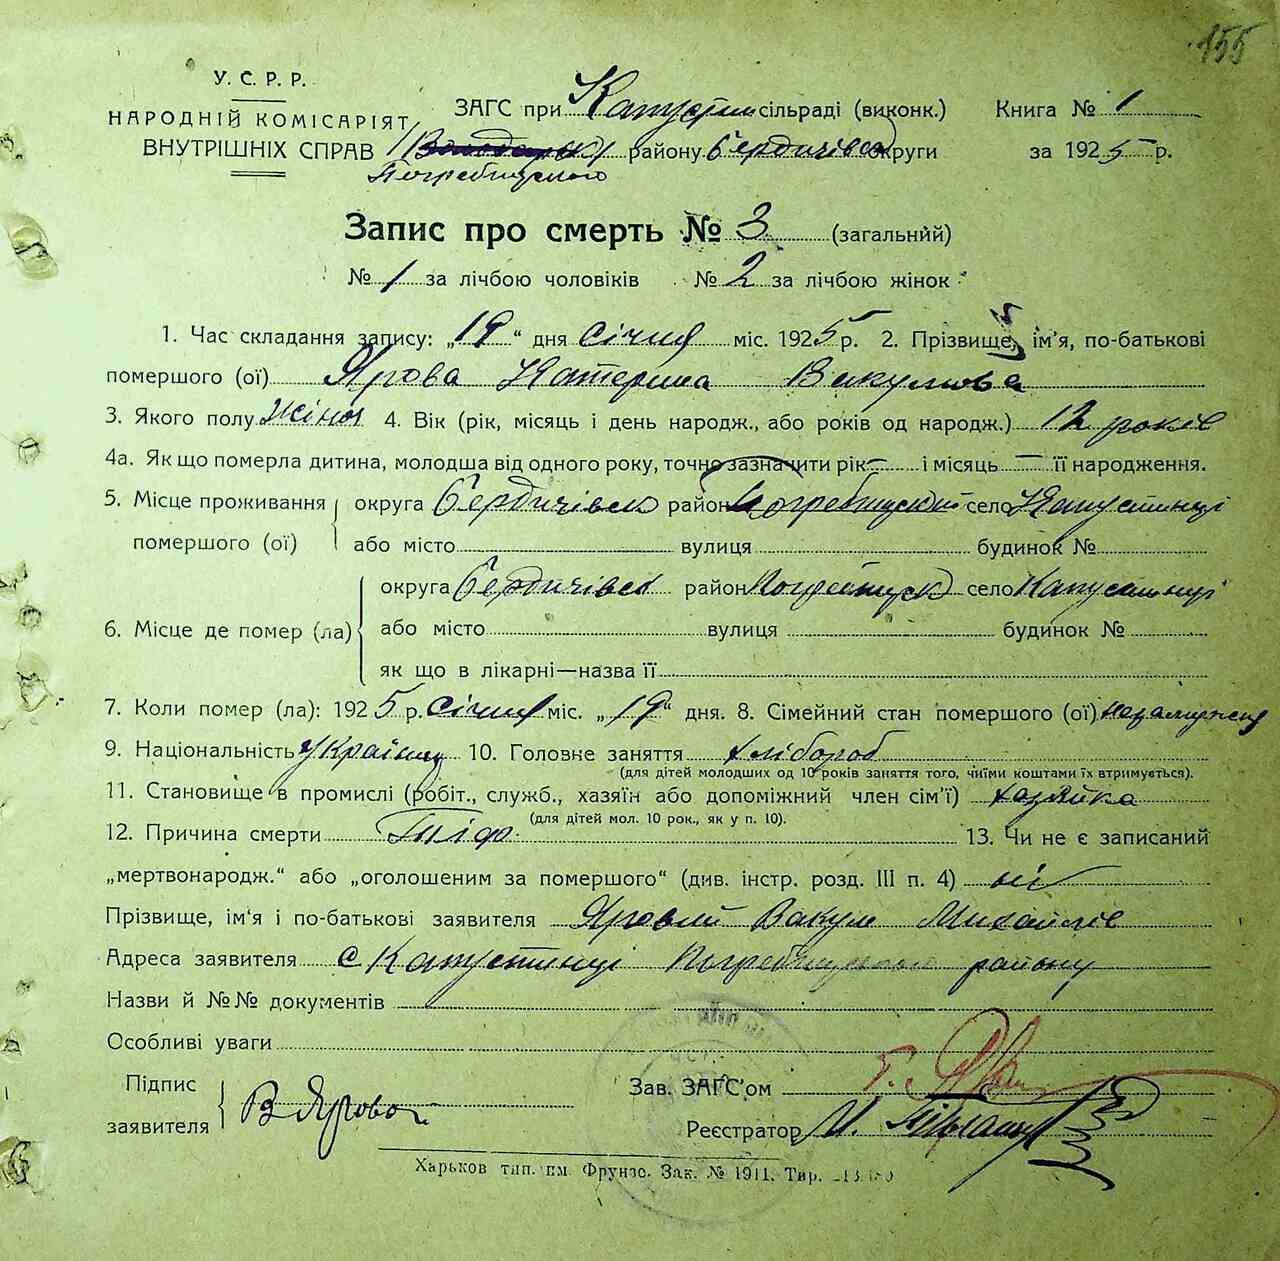 155
У. С. Р. Р.
НАРОДНІЙ КОМІСАРІЯТ
ВНУТРІШНІХ СПРАВ
ЗАГС при Капустин сільраді (виконк.) Книга № 1
району Бердичівск округи за 1925 р.
Погребищського
Запис про смерть № 3 (загальний)
№ 1 за лічбою чоловіків № 2 за лічбою жінок
1. Час складання запису: „19“ дня січня міс. 1925 р. 2. Прізвище, ім'я, по-батькові
помершого (ої) Ярова Катерина Вакулова
3. Якого полу жіноч 4. Вік (рік, місяць і день народж., або років од народж.) 12 років
4а. Як що померла дитина, молодша від одного року, точно зазначити рік — і місяць — її народження.
5. Місце проживання округа Бердичівск район Погребищский село Капустинці
помершого (ої) або місто вулиця будинок №
округа Бердичівск район Погребищск село Капустинці
6. Місце де помер (ла) або місто вулиця будинок №
як що в лікарні—назва її
7. Коли помер (ла): 1925 р. січня міс. „19“ дня. 8. Сімейний стан помершого (ої) незамужня
9. Національність Україн 10. Головне заняття хлібороб
(для дітей молодших од 10 років заняття того, чиїми коштами їх втримується).
11. Становище в промислі (робіт., служб., хазяїн або допоміжний член сім'ї) хазяйка
(для дітей мол. 10 рок., як у п. 10).
12. Причина смерти Тіф 13. Чи не є записаний
„мертвонародж.“ або „оголошеним за помершого“ (див. інстр. розд. III п. 4) ні
Прізвище, ім'я і по-батькові заявителя Яровий Вакул Михайлів
Адреса заявителя с Капустинці Погребищського району
Назви й №№ документів
Особливі уваги
Підпис Зав. ЗАГС'ом
заявителя В Яровой Реєстратор И.
Харьков тип. им. Фрунзе. Зак. № 1911. Тир.